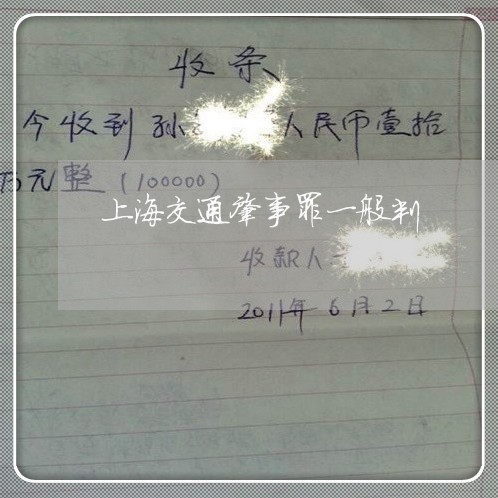 收条
今收到孙 人民币壹拾
万元整(100000)
上海交通肇事罪一般判
收款人
2011年6月2日